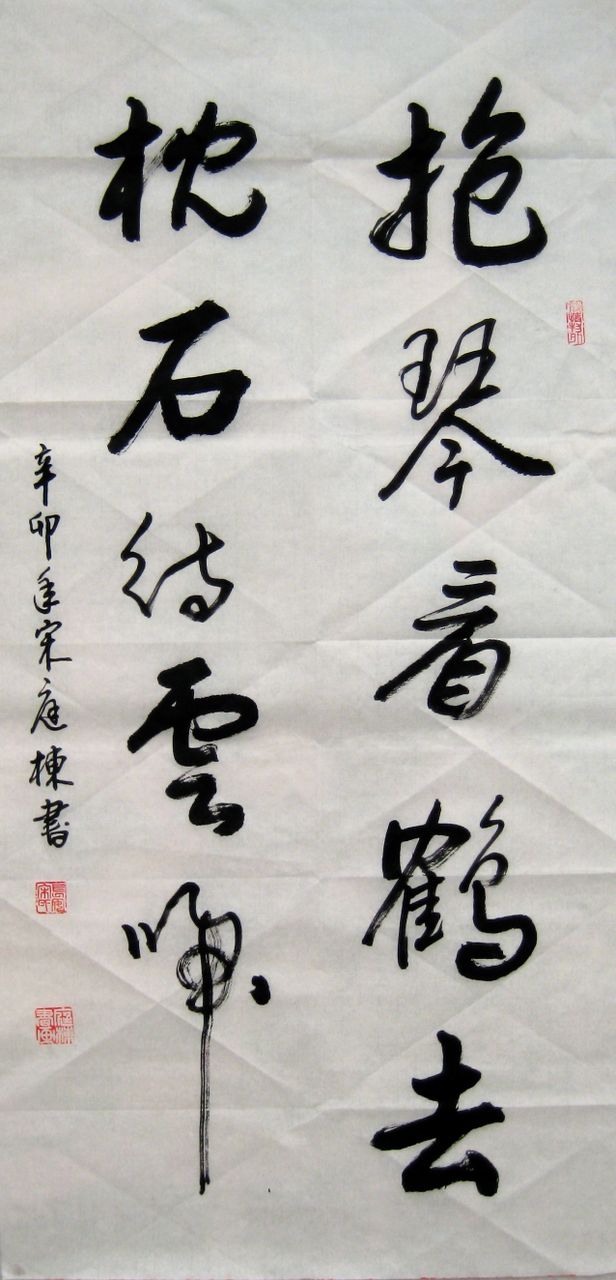 抱琴看鶴去
枕石待雲歸
辛卯年宋庭棟書